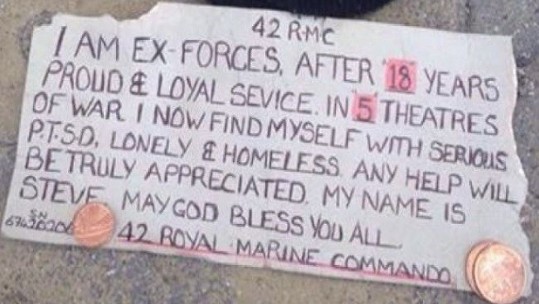 42 R·M·C
I AM EX-FORCES, AFTER "18" YEARS
PROUD & LOYAL SEVICE. IN "5" THEATRES
OF WAR I NOW FIND MYSELF WITH SERIOUS
P.T.S.D, LONELY & HOMELESS. ANY HELP WILL
BE TRULY APPRECIATED. MY NAME IS
STEVE MAY GOD BLESS YOU ALL.
SN
42 ROYAL MARINE COMMANDO